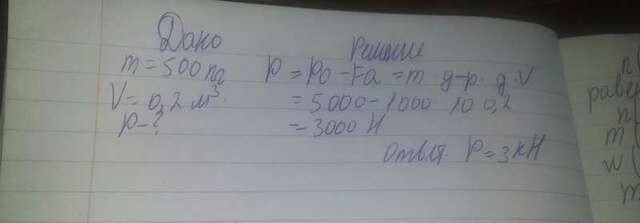 Дано
Решение
m = 500 кг
P = P0 - Fa = m g - p. g. V
V = 0,2 м³.
= 5000 - 1000 10 0,2
P - ?
= 3000 Н
Ответ. P = 3 кН
равен
m
m